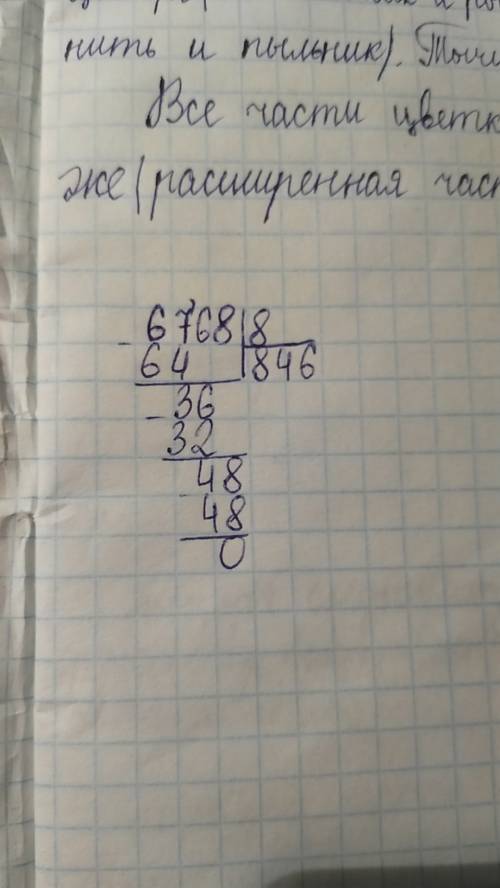 нить и пыльник). Тычи
Все части цветк
же (расширенная част
- 6768|8
64 |846
- 36
32
- 48
48
0